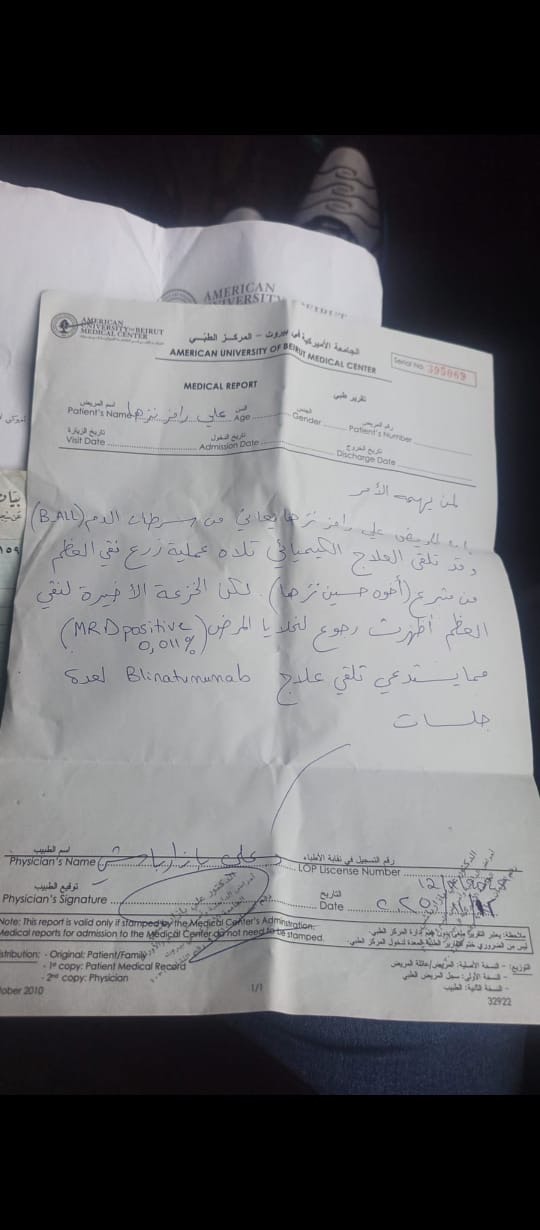 AMERICAN
UNIVERSITY
AMERICAN
UNIVERSITY OF BEIRUT
MEDICAL CENTER
الجامعة الأميركية في بيروت - المركز الطبي
AMERICAN UNIVERSITY OF BEIRUT MEDICAL CENTER
Serial No. 395069
MEDICAL REPORT
تقرير طبي
اسم المريض السن الجنس رقم المريض
Patient's Name علي رامز نزها Age Gender Patient's Number
تاريخ الزيارة تاريخ الدخول تاريخ الخروج
Visit Date Admission Date Discharge Date
لمن يهمه الأمر
المريض علي رامز نزها يعاني من سرطان الدم (B-ALL)
وقد تلقى العلاج الكيميائي تلاه عملية زرع نقي العظم
من متبرع (أخوه حسين نزها). لكن الخزعة الأخيرة لنقي
العظم أظهرت رجوع لخلايا المرض (MRD positive
0,011%)
مما يستدعي تلقي علاج Blinatumumab لعدة
جلسات
اسم الطبيب رقم التسجيل في نقابة الأطباء
Physician's Name علي LOP Liscense Number
توقيع الطبيب التاريخ
Physician's Signature Date
Note: This report is valid only if stamped by the Medical Center's Adminstration.
Medical reports for admission to the Medical Center do not need to be stamped.
ملاحظة: يعتبر التقرير إدارة المركز الطبي.
ليس من الضروري ختم التقارير الطبية المعدة لدخول المركز الطبي
stribution: - Original: Patient/Family
- 1st copy: Patient Medical Record
- 2nd copy: Physician
التوزيع: - النسخة الأصلية: المريض/عائلة المريض
- النسخة الأولى: سجل المريض الطبي
- النسخة الثانية: الطبيب
tober 2010
1/1
32922